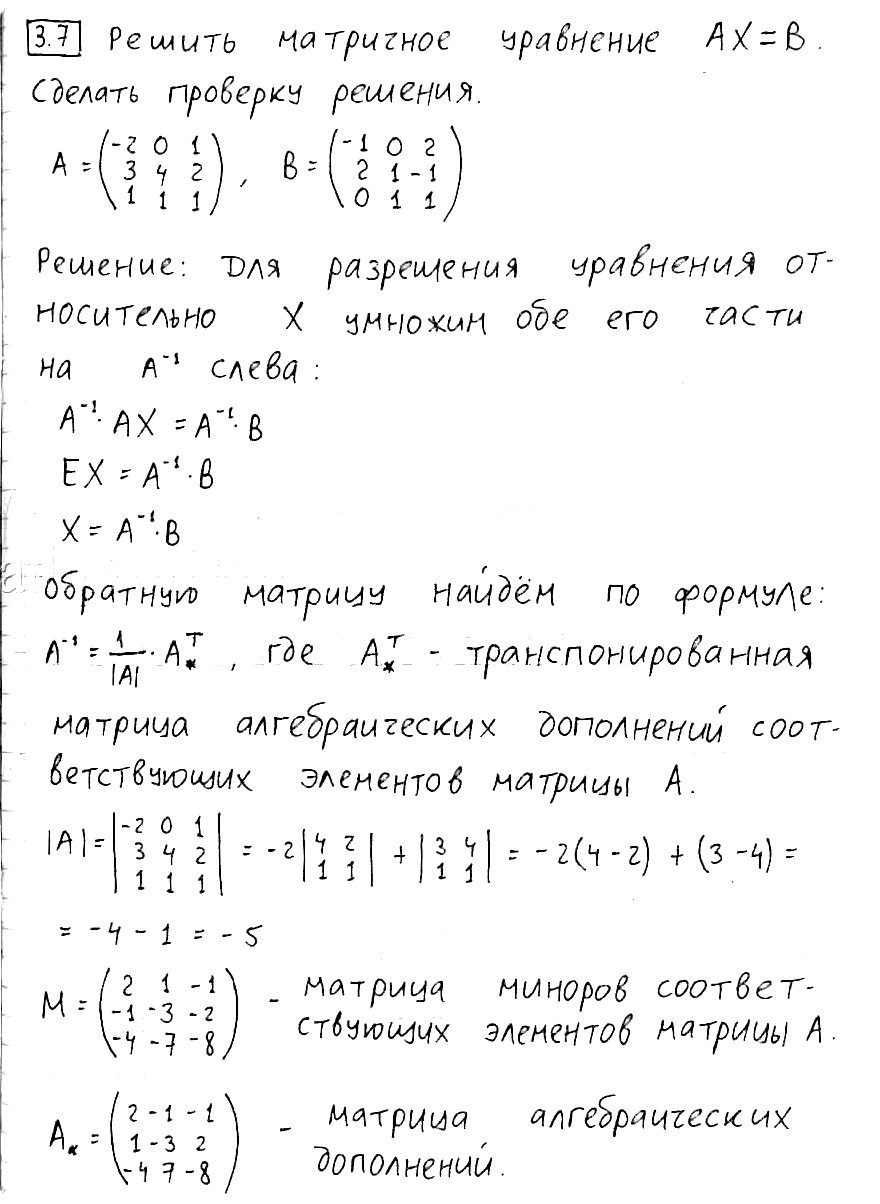 3.7 Решить матричное уравнение AX=B.
Сделать проверку решения.
A=(-2 0 1; 3 4 2; 1 1 1), B=(-1 0 2; 2 1 -1; 0 1 1)
Решение: Для разрешения уравнения от-
носительно X умножим обе его части
на A⁻¹ слева:
A⁻¹·AX=A⁻¹·B
EX=A⁻¹·B
X=A⁻¹·B
Обратную матрицу найдём по формуле:
A⁻¹=1/|A|·A*ᵀ, где A*ᵀ - транспонированная
матрица алгебраических дополнений соот-
ветствующих элементов матрицы A.
|A|=|-2 0 1; 3 4 2; 1 1 1|=-2|4 2; 1 1|+|3 4; 1 1|=-2(4-2)+(3-4)=
=-4-1=-5
M=(2 1 -1; -1 -3 -2; -4 -7 -8) - матрица миноров соответ-
ствующих элементов матрицы A.
A*=(2 -1 -1; 1 -3 2; -4 7 -8) - матрица алгебраических
дополнений.